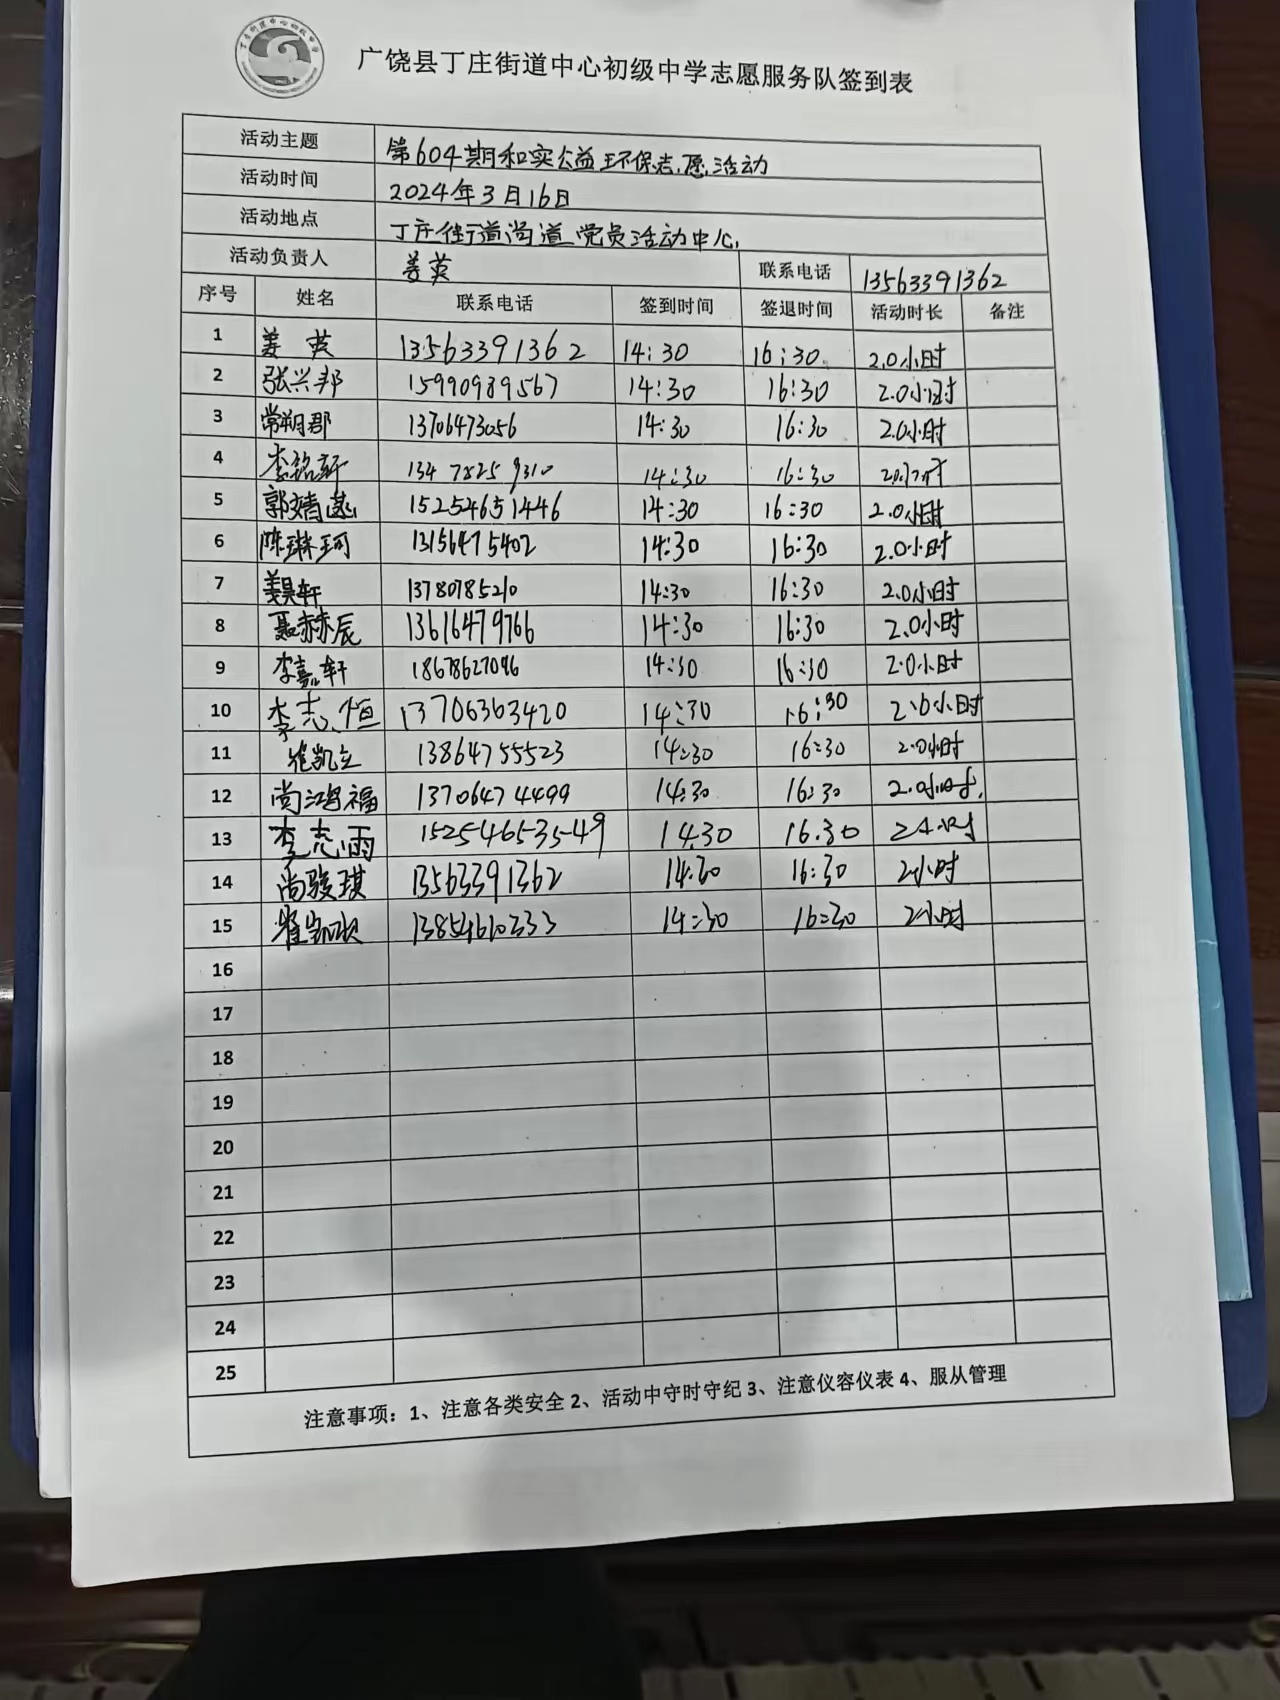 广饶县丁庄街道中心初级中学志愿服务队签到表
活动主题 第604期和实公益环保志愿活动
活动时间 2024年3月16日
活动地点 丁庄街道尚道党员活动中心
活动负责人 姜英 联系电话 13563391362
序号 姓名 联系电话 签到时间 签退时间 活动时长 备注
1 姜英 13563391362 14:30 16:30 2.0小时
2 张兴邦 15990989567 14:30 16:30 2.0小时
3 常朔郡 13706473056 14:30 16:30 2.0小时
4 李铭轩 134 7825 9310 14:30 16:30 2.0小时
5 郭靖 15254651446 14:30 16:30 2.0小时
6 陈琳珂 13156475402 14:30 16:30 2.0小时
7 姜昊轩 13780785210 14:30 16:30 2.0小时
8 聂赫辰 13616479766 14:30 16:30 2.0小时
9 李嘉轩 18678627096 14:30 16:30 2.0小时
10 李志恒 13706363420 14:30 16:30 2.0小时
11 崔凯立 13864755523 14:30 16:30 2.0小时
12 尚鸿福 13706474499 14:30 16:30 2.0小时
13 李志雨 15254653549 14.30 16.30 2小时
14 尚骏琪 13563391362 14:30 16:30 2小时
15 崔 13854610333 14:30 16:30 2小时
16
17
18
19
20
21
22
23
24
25
注意事项：1、注意各类安全 2、活动中守时守纪 3、注意仪容仪表 4、服从管理